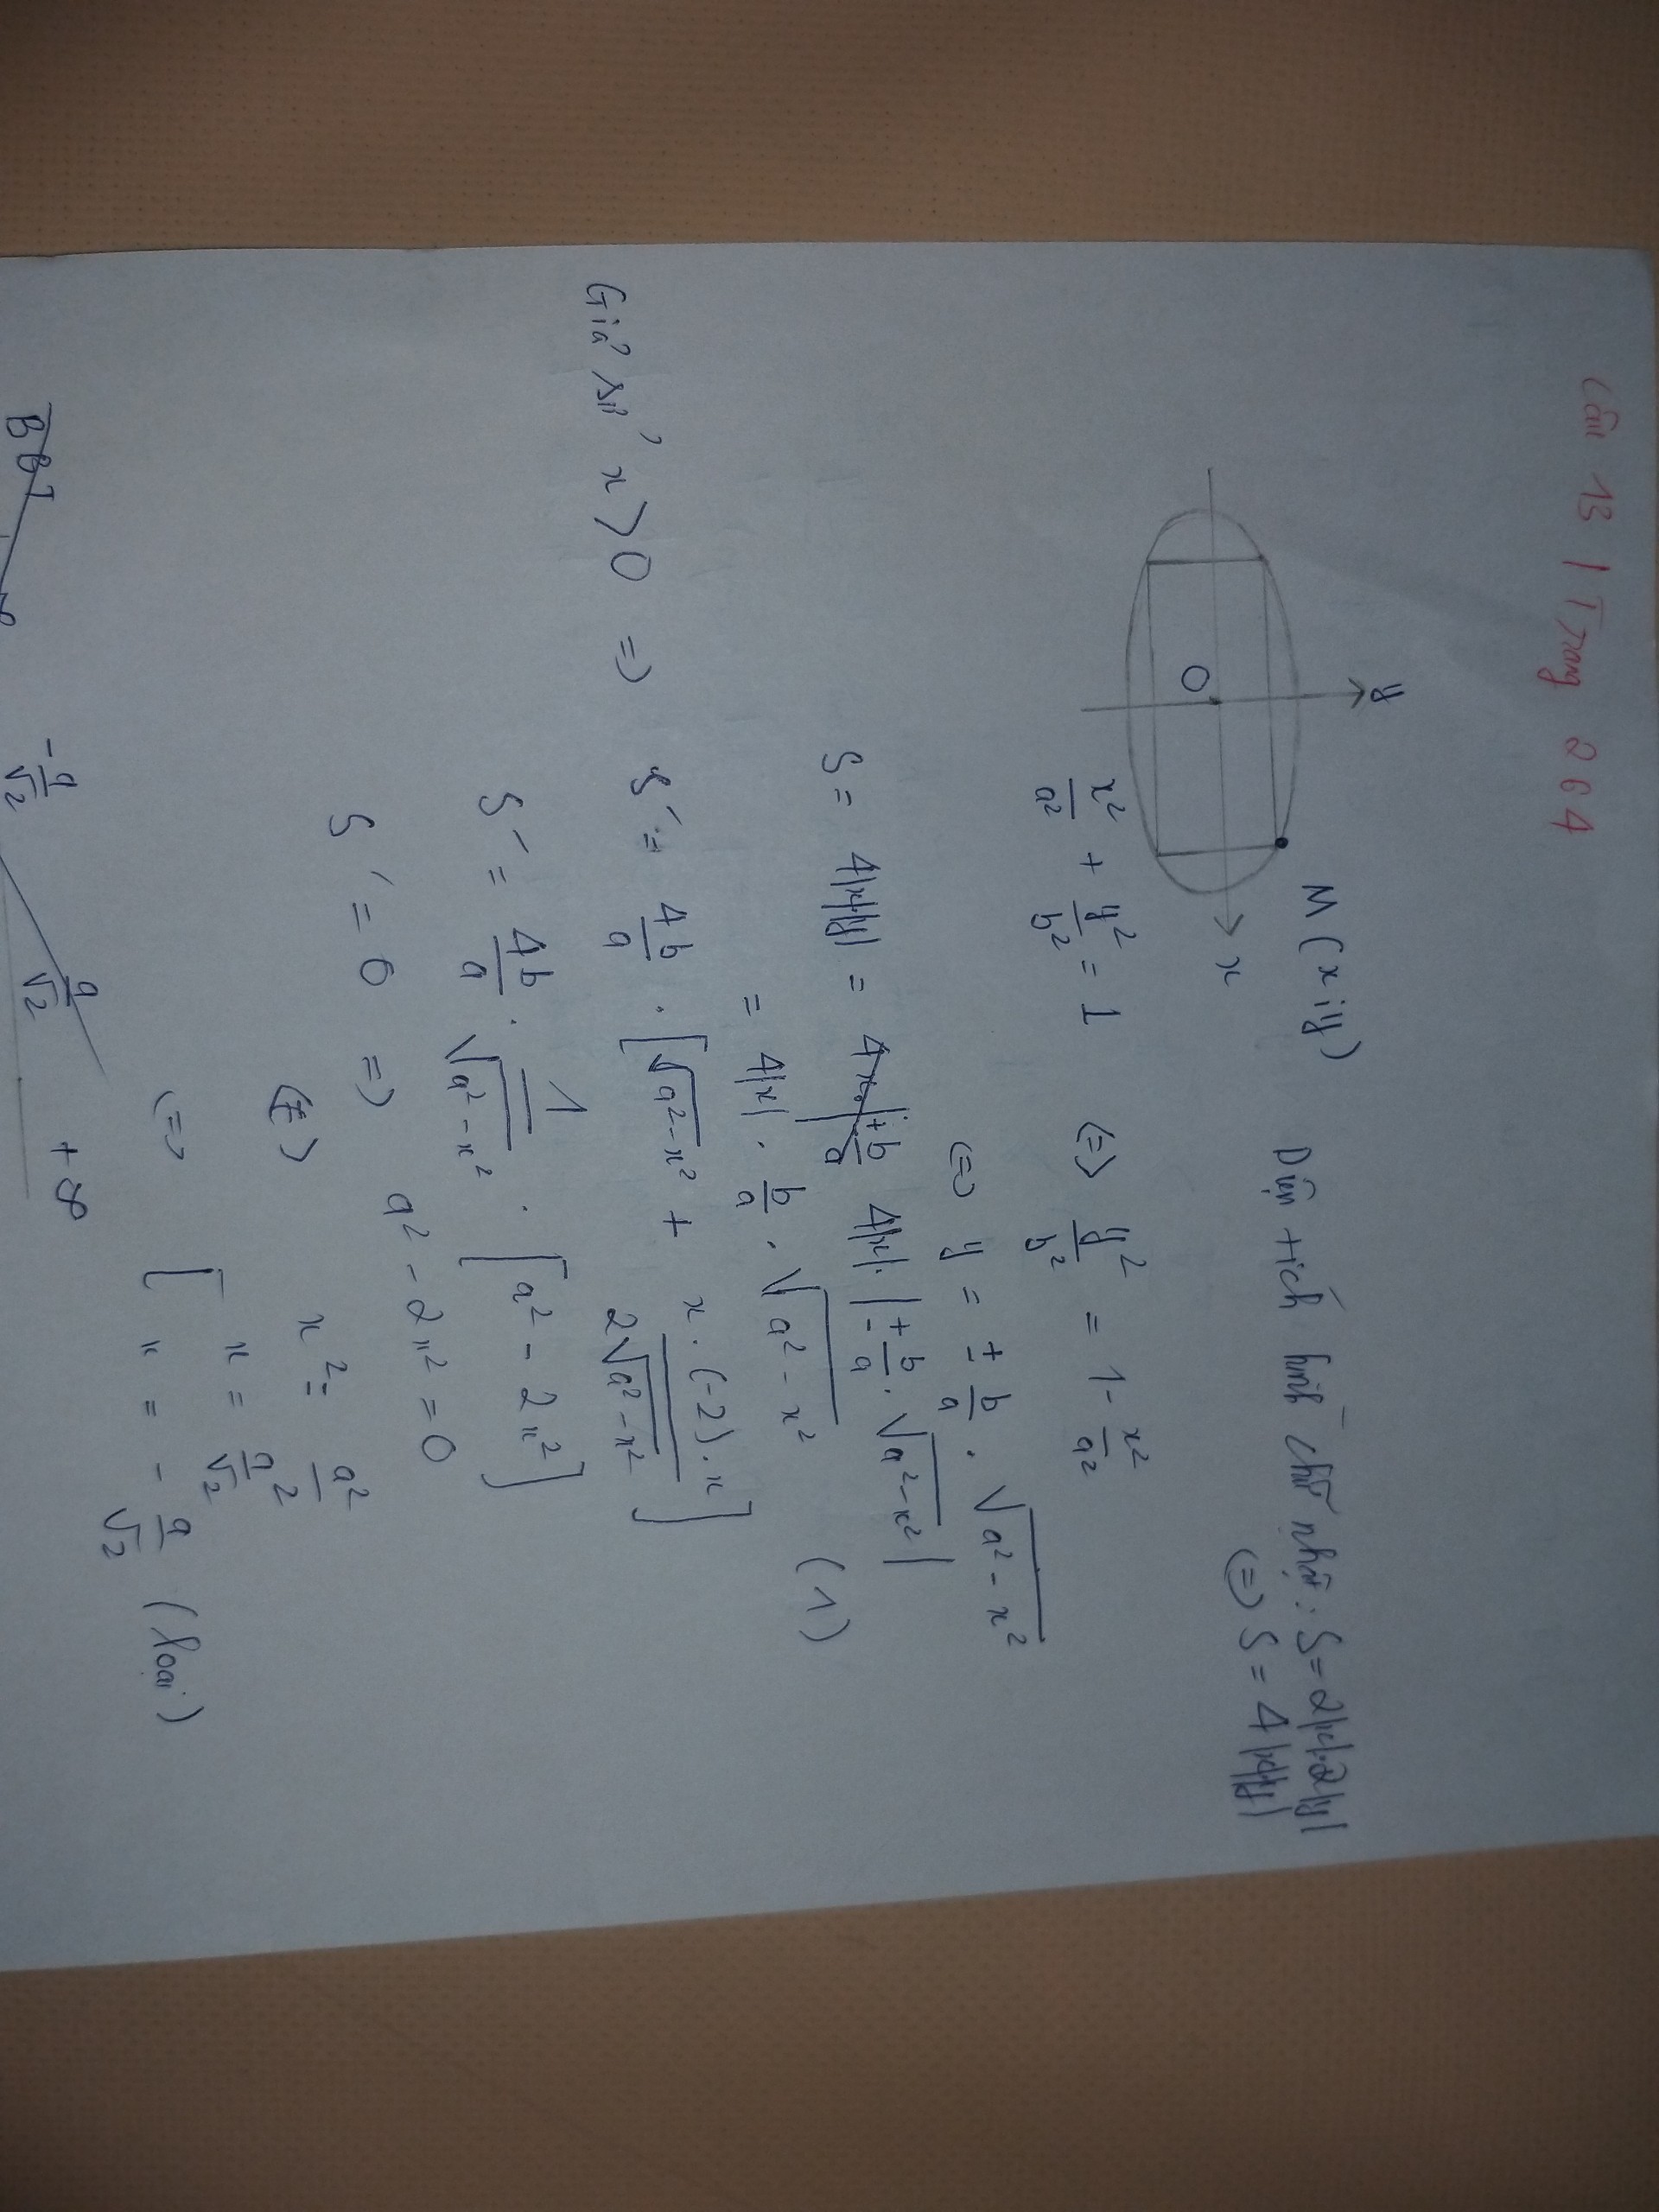 Câu 13 | Trang 264
y
M (x ; y)
Diện tích hình chữ nhật: S = 2|x|.2|y|
(=) S = 4|x||y|
x
O
x²/a² + y²/b² = 1 (=) y²/b² = 1 - x²/a²
(=) y = ± b/a . √(a² - x²)
S = 4|x||y| = 4|x|. |± b/a . √(a² - x²)|
= 4|x| . b/a . √(a² - x²) (1)
Giả sử x > 0 => S' = 4b/a . [√(a² - x²) + x . (-2) . x / 2√(a² - x²)]
S' = 4b/a . 1/√(a² - x²) . [a² - 2x²]
S' = 0 => a² - 2x² = 0
(=) x² = a²/2
(=) [ x = a/√2
x = - a/√2 (loại)
BBT
-a/√2 a/√2 +∞